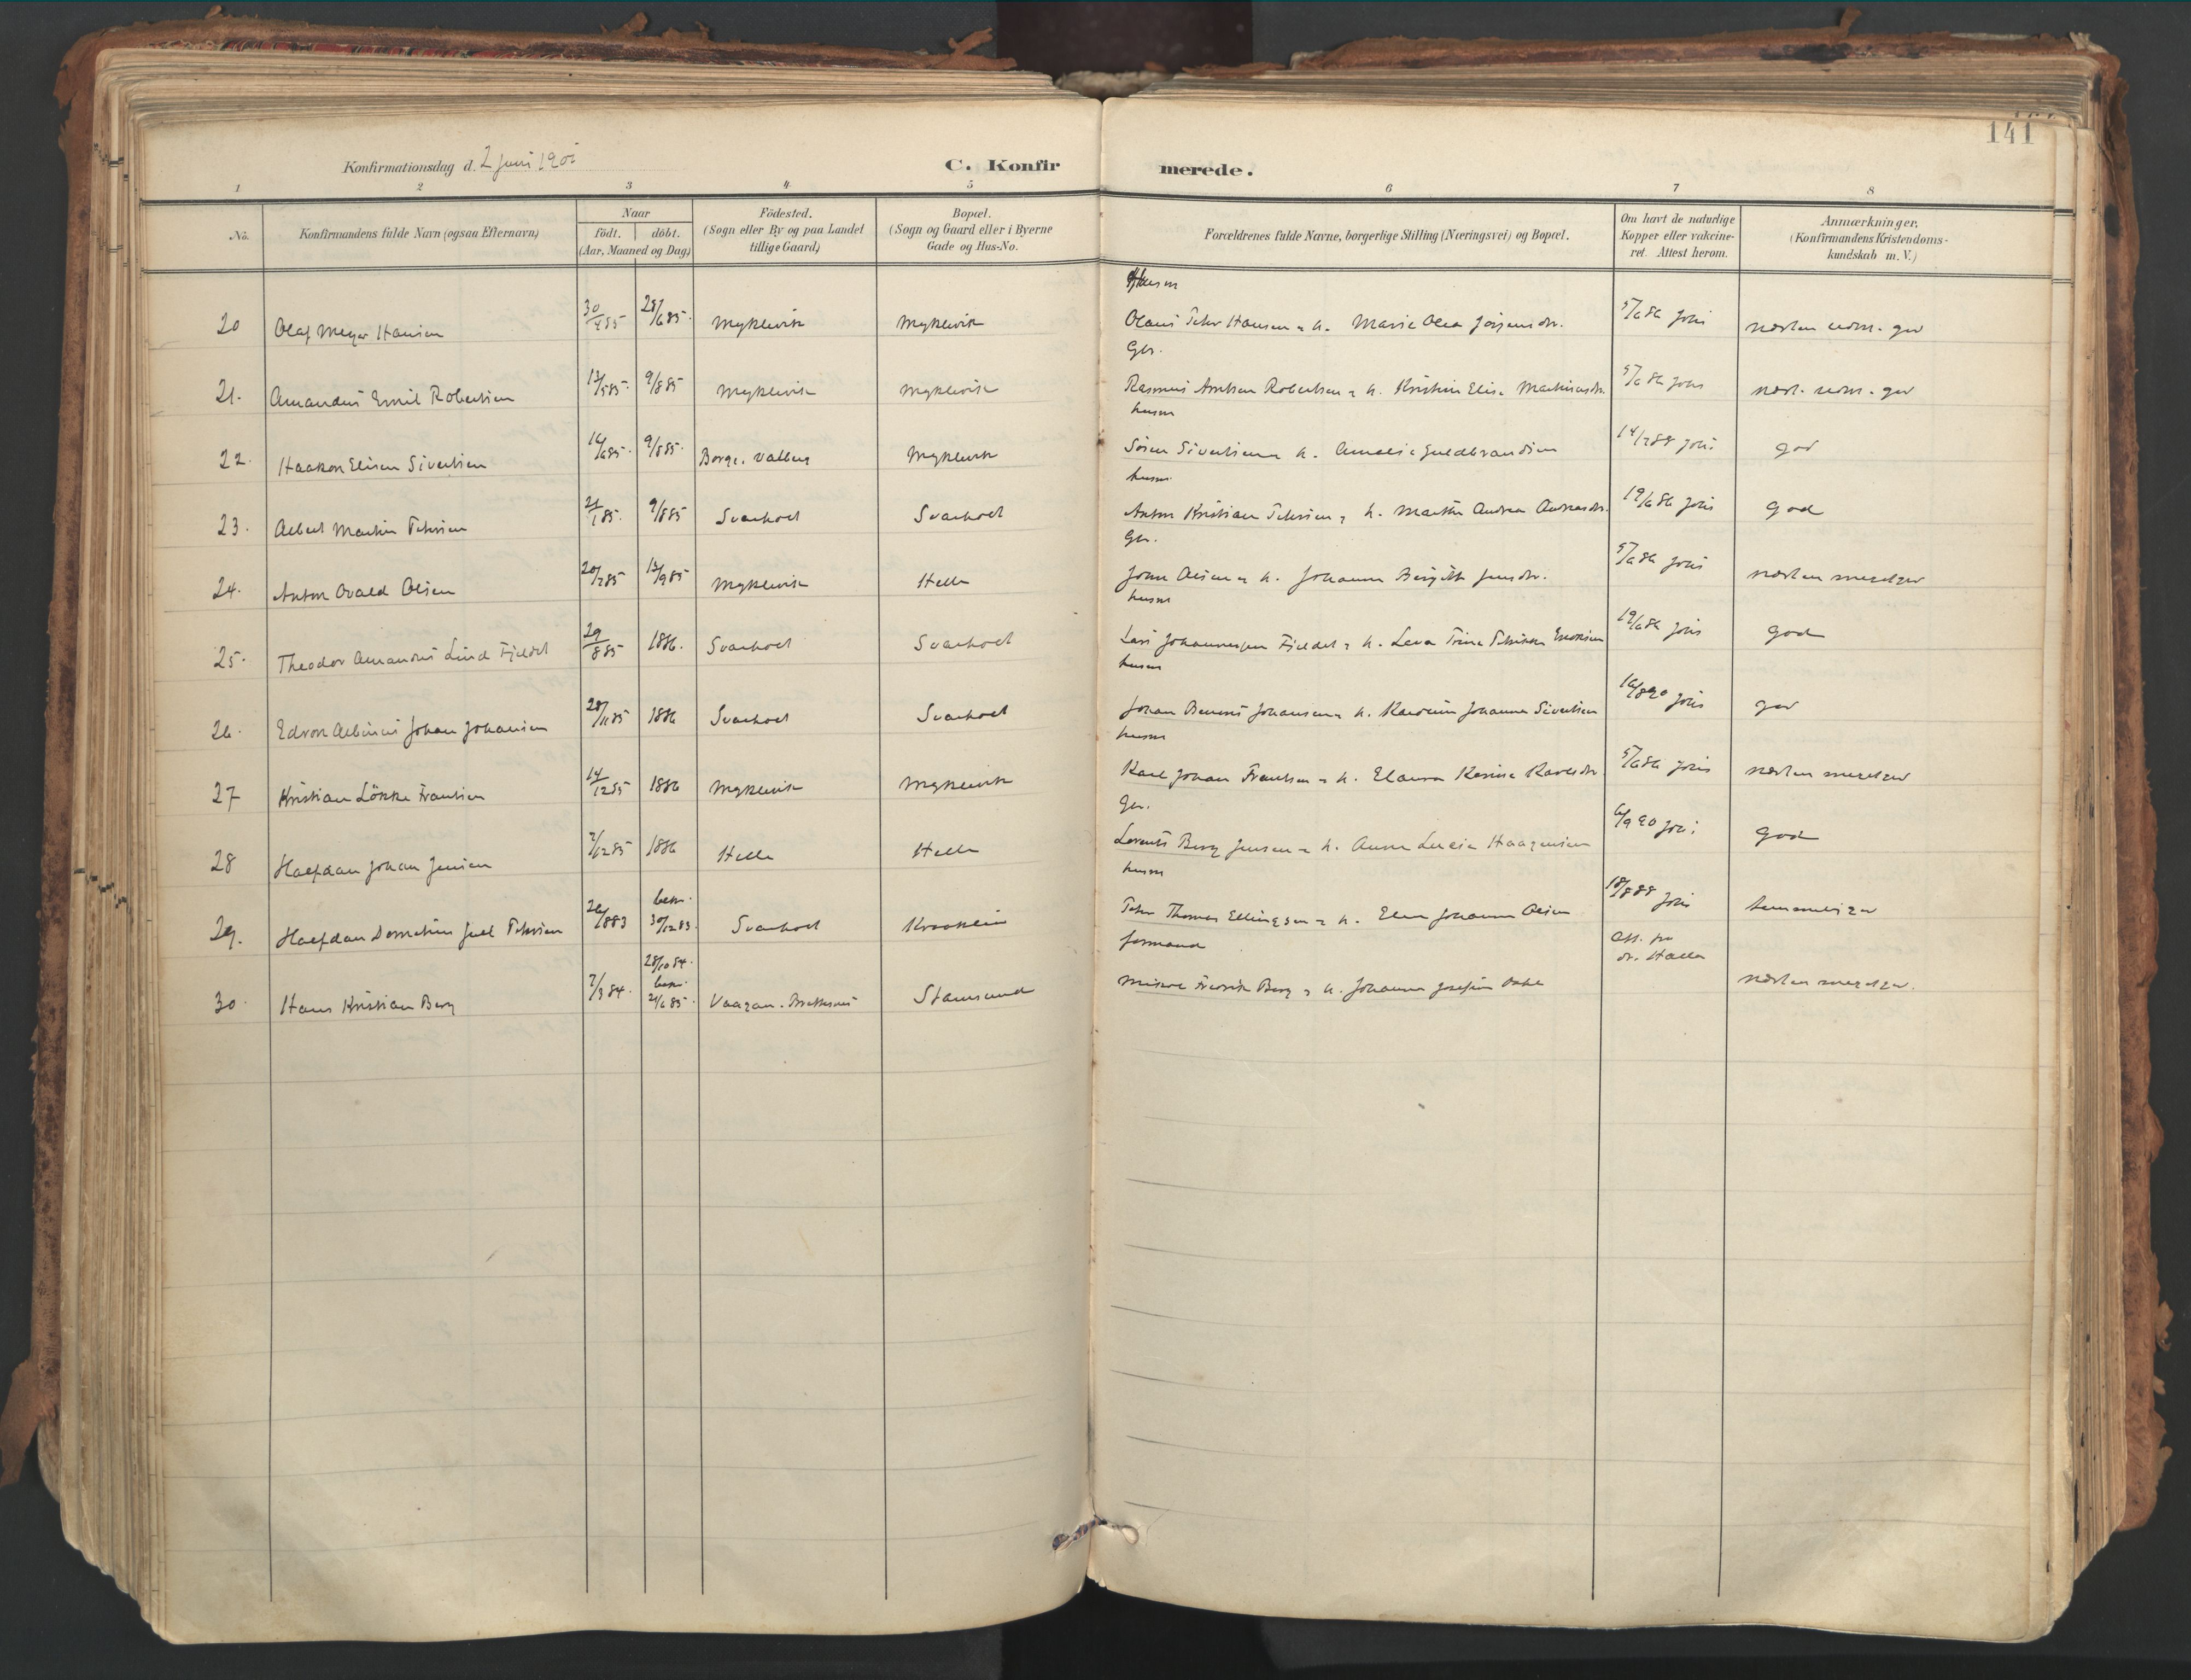 141
Konfirmationsdag d. 2 juni 1901
C. Konfirmerede.
1 2 3 4 5 6 7 8
No.
Konfirmandens fulde Navn (ogsaa Efternavn)
Naar
födt. döbt.
(Aar, Maaned og Dag)
Födested.
(Sogn eller By og paa Landet
tillige Gaard)
Bopæl.
(Sogn og Gaard eller i Byerne
Gade og Hus-No.
Forældrenes fulde Navne, borgerlige Stilling (Næringsvei) og Bopæl.
Om havt de naturlige
Kopper eller vakcine-
ret. Attest herom.
Anmærkninger,
(Konfirmandens Kristendoms-
kundskab m. V.)
20 Olaf Meyer Hansen 30/4 85 28/6 85. Myklevik Myklevik Olaus Peder Hansen & h. Marie Olea Jörgensdr. 5/6 86 Johs næsten udm. god
Gbr.
21. Amandus Emil Robertsen 13/5 85. 9/8 85 Myklevik Myklevik Rasmus Arntsen Robertsen & h. Kristin Elise Martinusdr. 5/6 86 Johs næst. udm. god
husm
22. Haakon Elisen Sivertsen 16/6 85. 9/8 85. Borge. Valberg Myklevik Sören Sivertsen & h. Amalie Guldbrandsen 14/7 88 Johs god
husm
23. Albert Martin Pedersen 21/1 85. 9/8 85 Svarholt Svarholt Anton Kristian Pedersen & h. Marthe Andrea Andreasdr. 19/6 86 Johs god
Gbr.
24. Anton Ovald Olsen 20/7 85 13/9 85 Myklevik Helle John Olsen & h. Johanna Bergitte Jensdr. 5/6 86 Johs næsten meget god
husm
25. Theodor Amandus Lind Fjeldet 29/8 85 1886. Svarholt Svarholt Lars Johannesen Fjeldet & h. Lena Trine 19/6 86 Johs god
husm
26. Edvon Albinius Johan Johansen 28/11 85 1886 Svarholt Svarholt Johan Johansen & h. Karolin Johanna Sivertsen 16/8 90 Johs god
husm
27 Kristian Lökke Frantsen 14/12 85 1886 Myklevik Myklevik Karl Johan Frantsen & h. Elaura Karlsdr. 5/6 86 Johs næsten meget god
Gbr.
28 Halfdan Johan Jensen 2/12 85 1886 Helle Helle Lorents Berg Jensen & h. Anna Lucia Haagensen 6/9 90 Johs god
husm
29. Halfdan Juel Pedersen 26/8 83 bekr. 30/12 83. Svarholt Kraaklein Peder Thomas Ellingsen & h. Elen Johanna Olsen 18/8 88 Johs temmelig god
formand
30. Hans Kristian Berg 7/3 84. 28/10 84. bekr. 21/6 85. Vaagan. Brettesnes Stamsund Fredrik Berg & h. Johanna Josefine Att. fra dr. Halla næsten meget god.